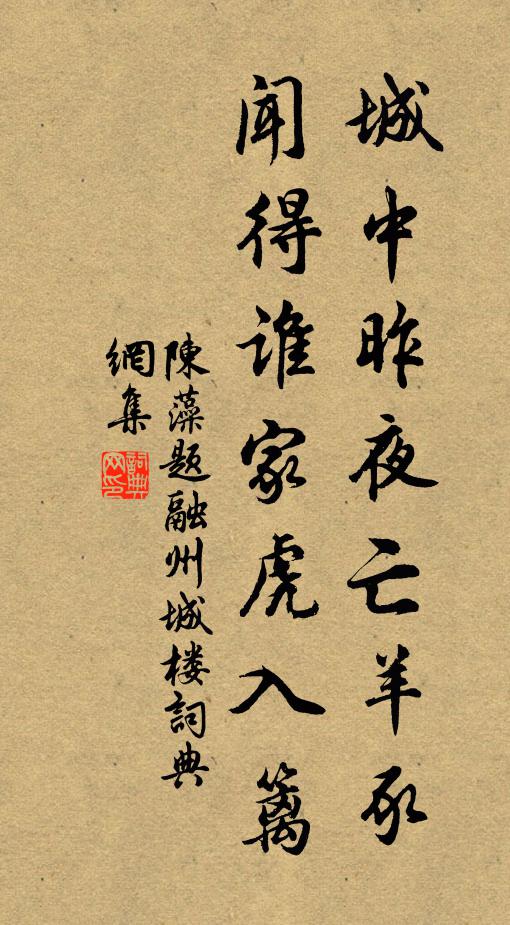 城中昨夜亡羊豕
聞得誰家虎入篱
陳藻题融州城楼詞典
網集
詞典
网印